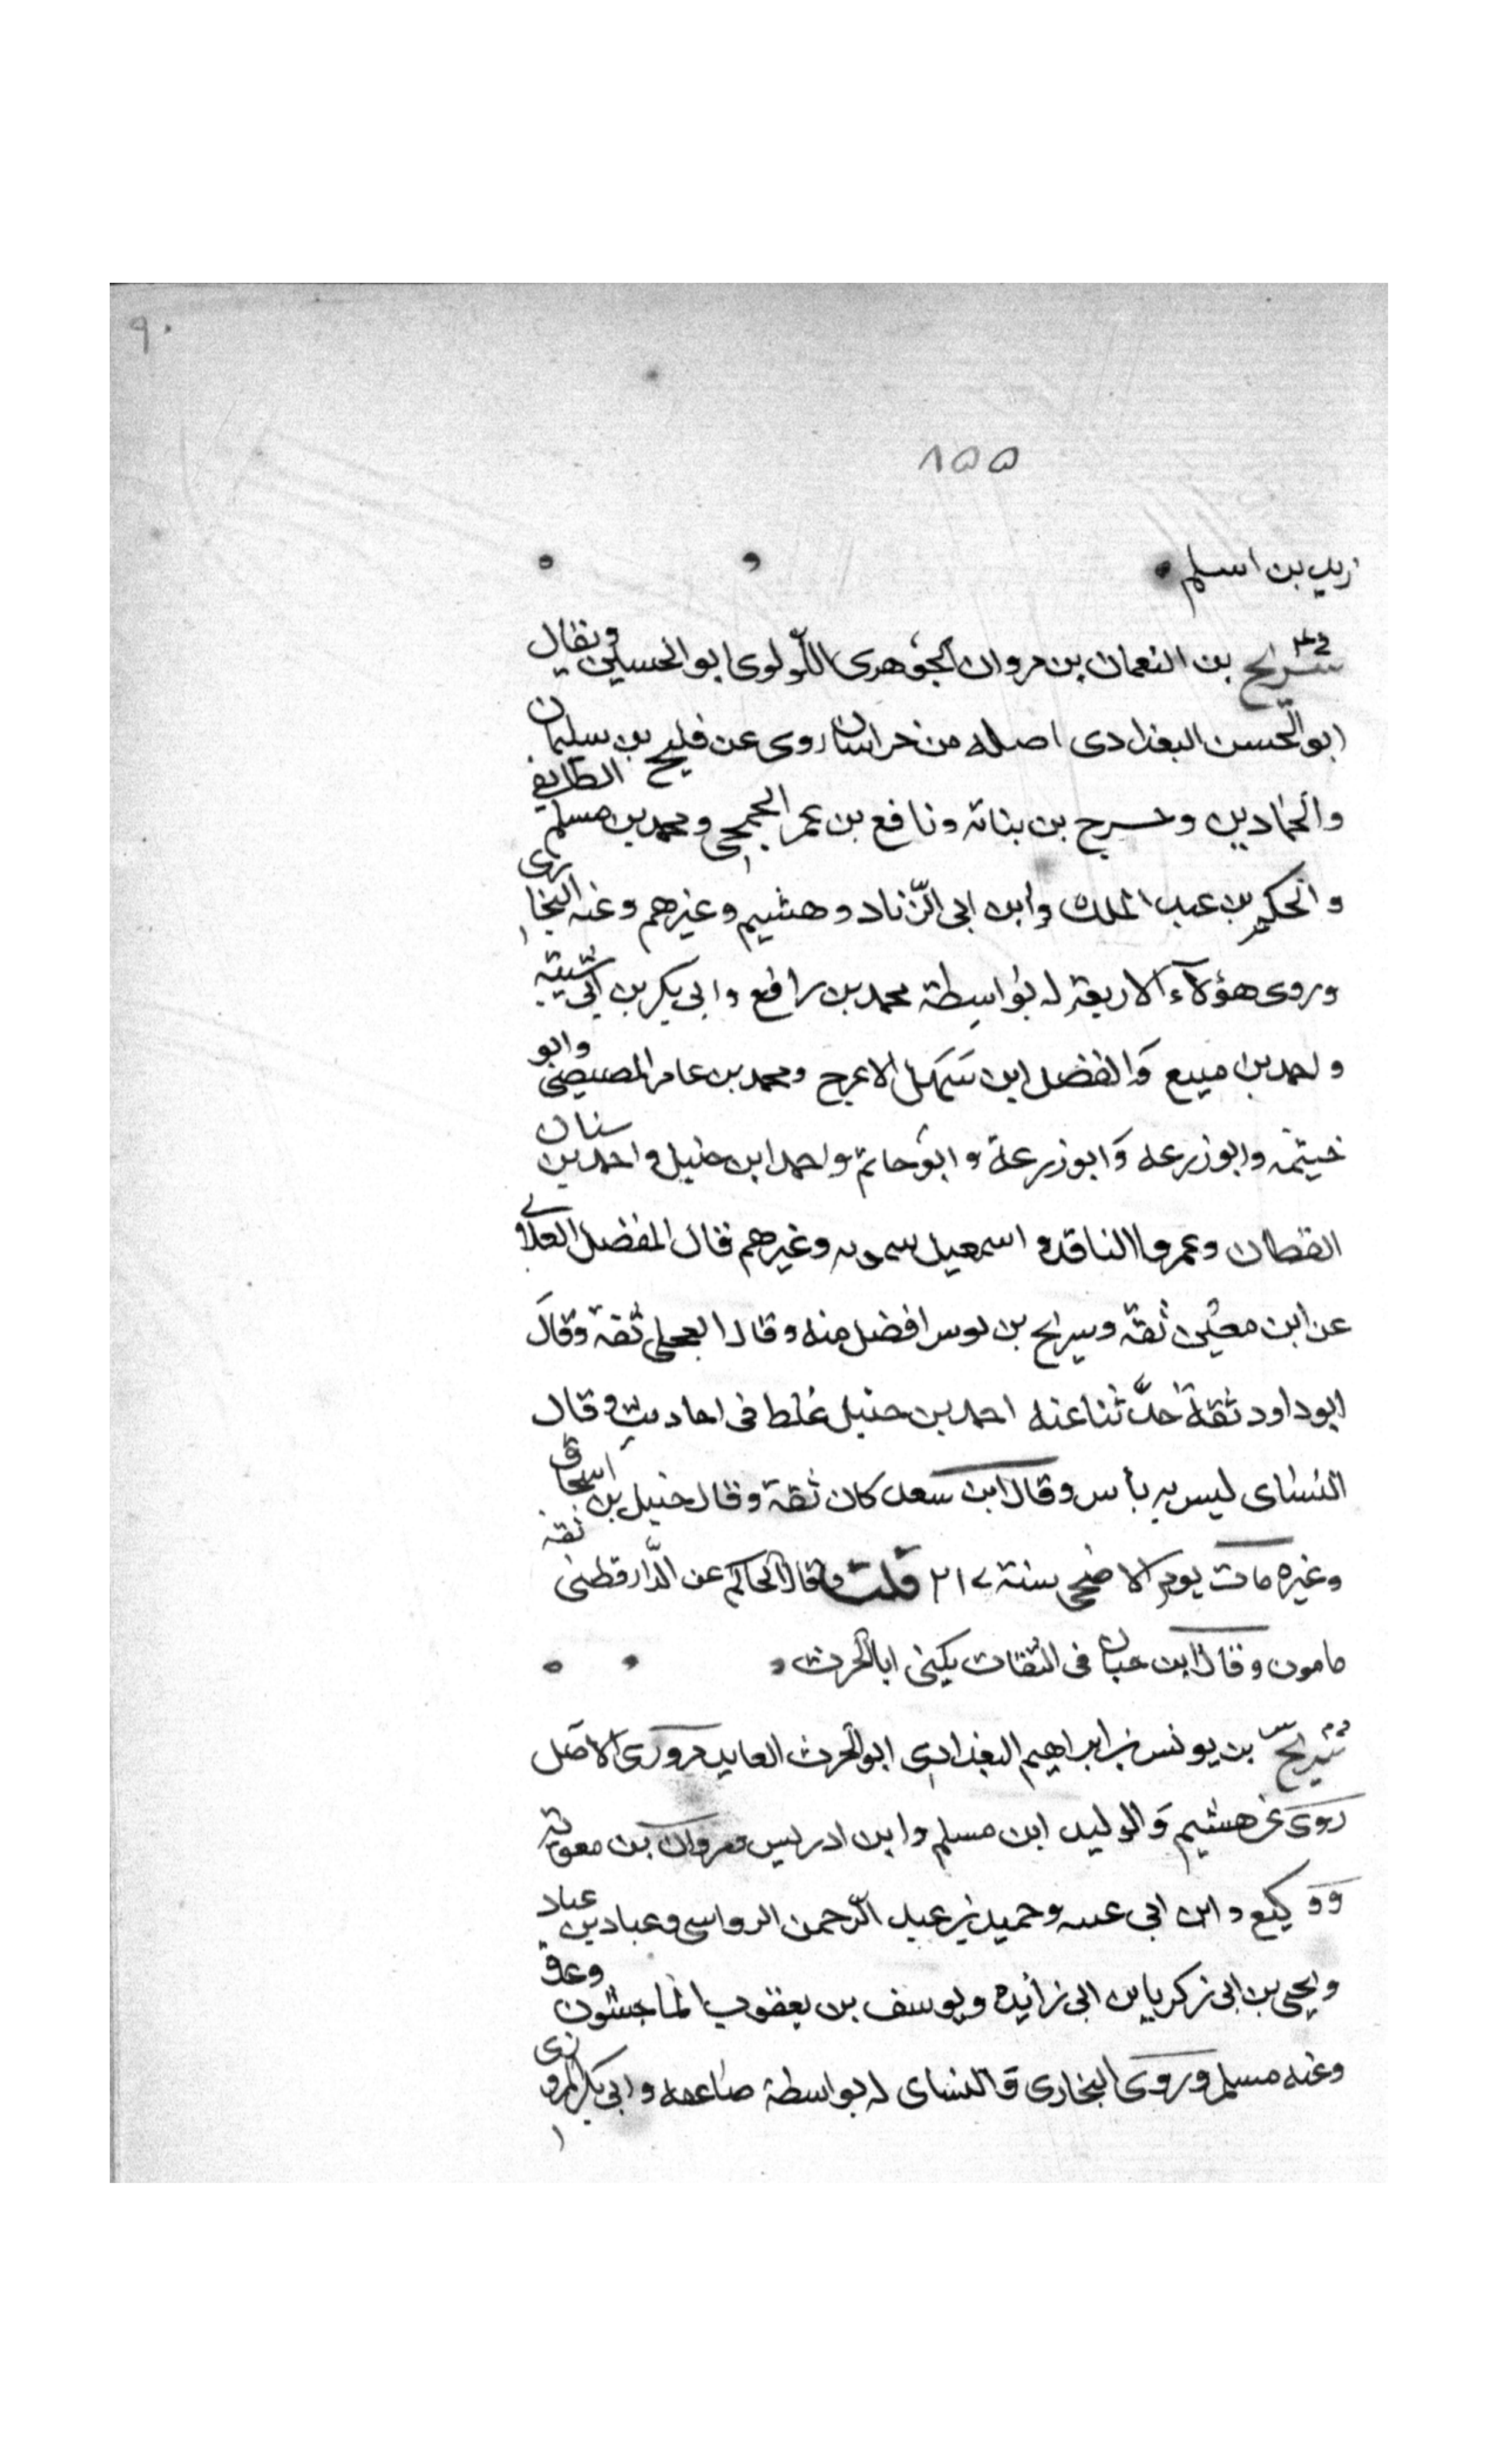 ٩٠
٨٥٥
زيد بن اسلم
سريح بن النعمان بن مروان الجوهرى اللؤلوى ابو الحسين ويقال
ابو الحسن البغدادى اصله من خراسان روى عن فليح بن سليمان
والحمادين وحشرج بن بناته ونافع بن عمر الجمحى ومحمد بن مسلم الطايفي
والحكم بن عبد الملك وابن ابى الزناد وهشيم وغيرهم وعنه البخارى
وروى هؤلآء الاربعة له بواسطة محمد بن رافع وابى بكر بن ابى شيبة
واحمد بن منيع والفضل ابن سهل الاعرج ومحمد بن عامر المصيصى وابو
خيثمه وابو زرعه وَابو زرعة وابو حاتم واحمد ابن حنبل واحمد بن سنان
القطان وعمرو الناقد و اسمعيل سمويه وغيرهم قال المفضل العلاى
عن ابن معين ثقة وسريح بن يونس افضل منه وقال العجلى ثقة وقال
ابو داود ثقة حدَّثنا عنه احمد بن حنبل غلط فى احاديث وقال
النسَاى ليس به بأس وقال ابن سعد كان ثقة وقال حنبل بن اسحاق
وغيره مات يوم الاضحى سنة ٢١٧ قلت وقال الحاكم عن الدَّارقطنى ثقة
مامون وقال ابن حبان فى الثقات يكنى ابا الحرث
سريح بن يونس بن ابراهيم البغدادى ابو الحرث العابد مروزى الاصل
روى عن هشيم وَالوليد ابن مسلم وابن ادريس ومروان بن معوية
ووكيع وابن ابى عبيه وحميد بن عبد الرّحمن الرواسى وعباد بن عباد
ويحيى بن ابى زكريا بن ابى زائده ويوسف بن يعقوب الماجشون وعدة
وعنه مسلم وروى البخارى والنساى له بواسطة صاعقه وابى بكر المروزى